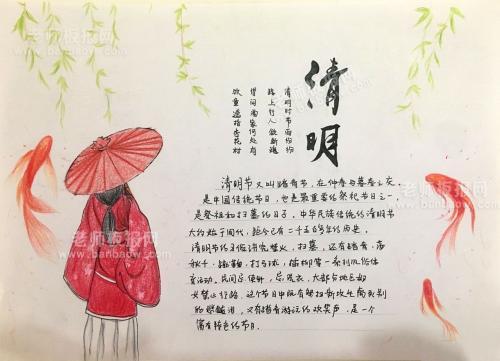 老师板报网
www.banbaow.com
老师板报网
www.banbaow.com
清明
清明时节雨纷纷
路上行人欲断魂
借问酒家何处有
牧童遥指杏花村
清明节又叫踏青节，在仲春与暮春之交
是中国传统节日，也是最重要的祭祀节日之一
是祭祖和扫墓的日子，中华民族传统的清明节
大约始于周代，距今已有二千五百多年的历史，
清明节的习俗讲究禁火、扫墓，还有踏青、荡
秋千、蹴鞠、打马球、插柳等一系列风俗体
育活动。民间忌使针，忌洗衣，大部分地区妇
女禁止行路，这个节日中既有祭扫新坟生离死别
的悲酸泪，又有踏青游玩的欢笑声，是一个
富有特色的节日。
老师板报网
www.banbaow.com
老师板报网
www.banbaow.com